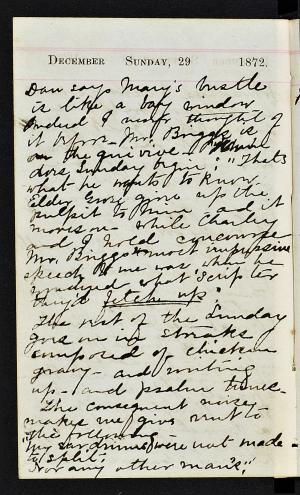 DECEMBER SUNDAY, 29 1872.
Dan says Mary's bustle
is like a bay window
Indeed I never thought of
it before - Mr. Briggs is
on the qui vive.
does Sunday begin?" "That's
what he wants to know
Elder goes up the
pulpit to and it
while Charley
and I hold concourse
Mr. Briggs most impressive
speech to me was when he
what Scripter
they'd fetch up".
The rest of the Sunday
goes on in streaks
composed of chicken
gravy - and writing
up - and psalm tunes -
The consequent noise
makes me give vent to
the following -
"My ear drums were not made
to split.
Nor any other man's."